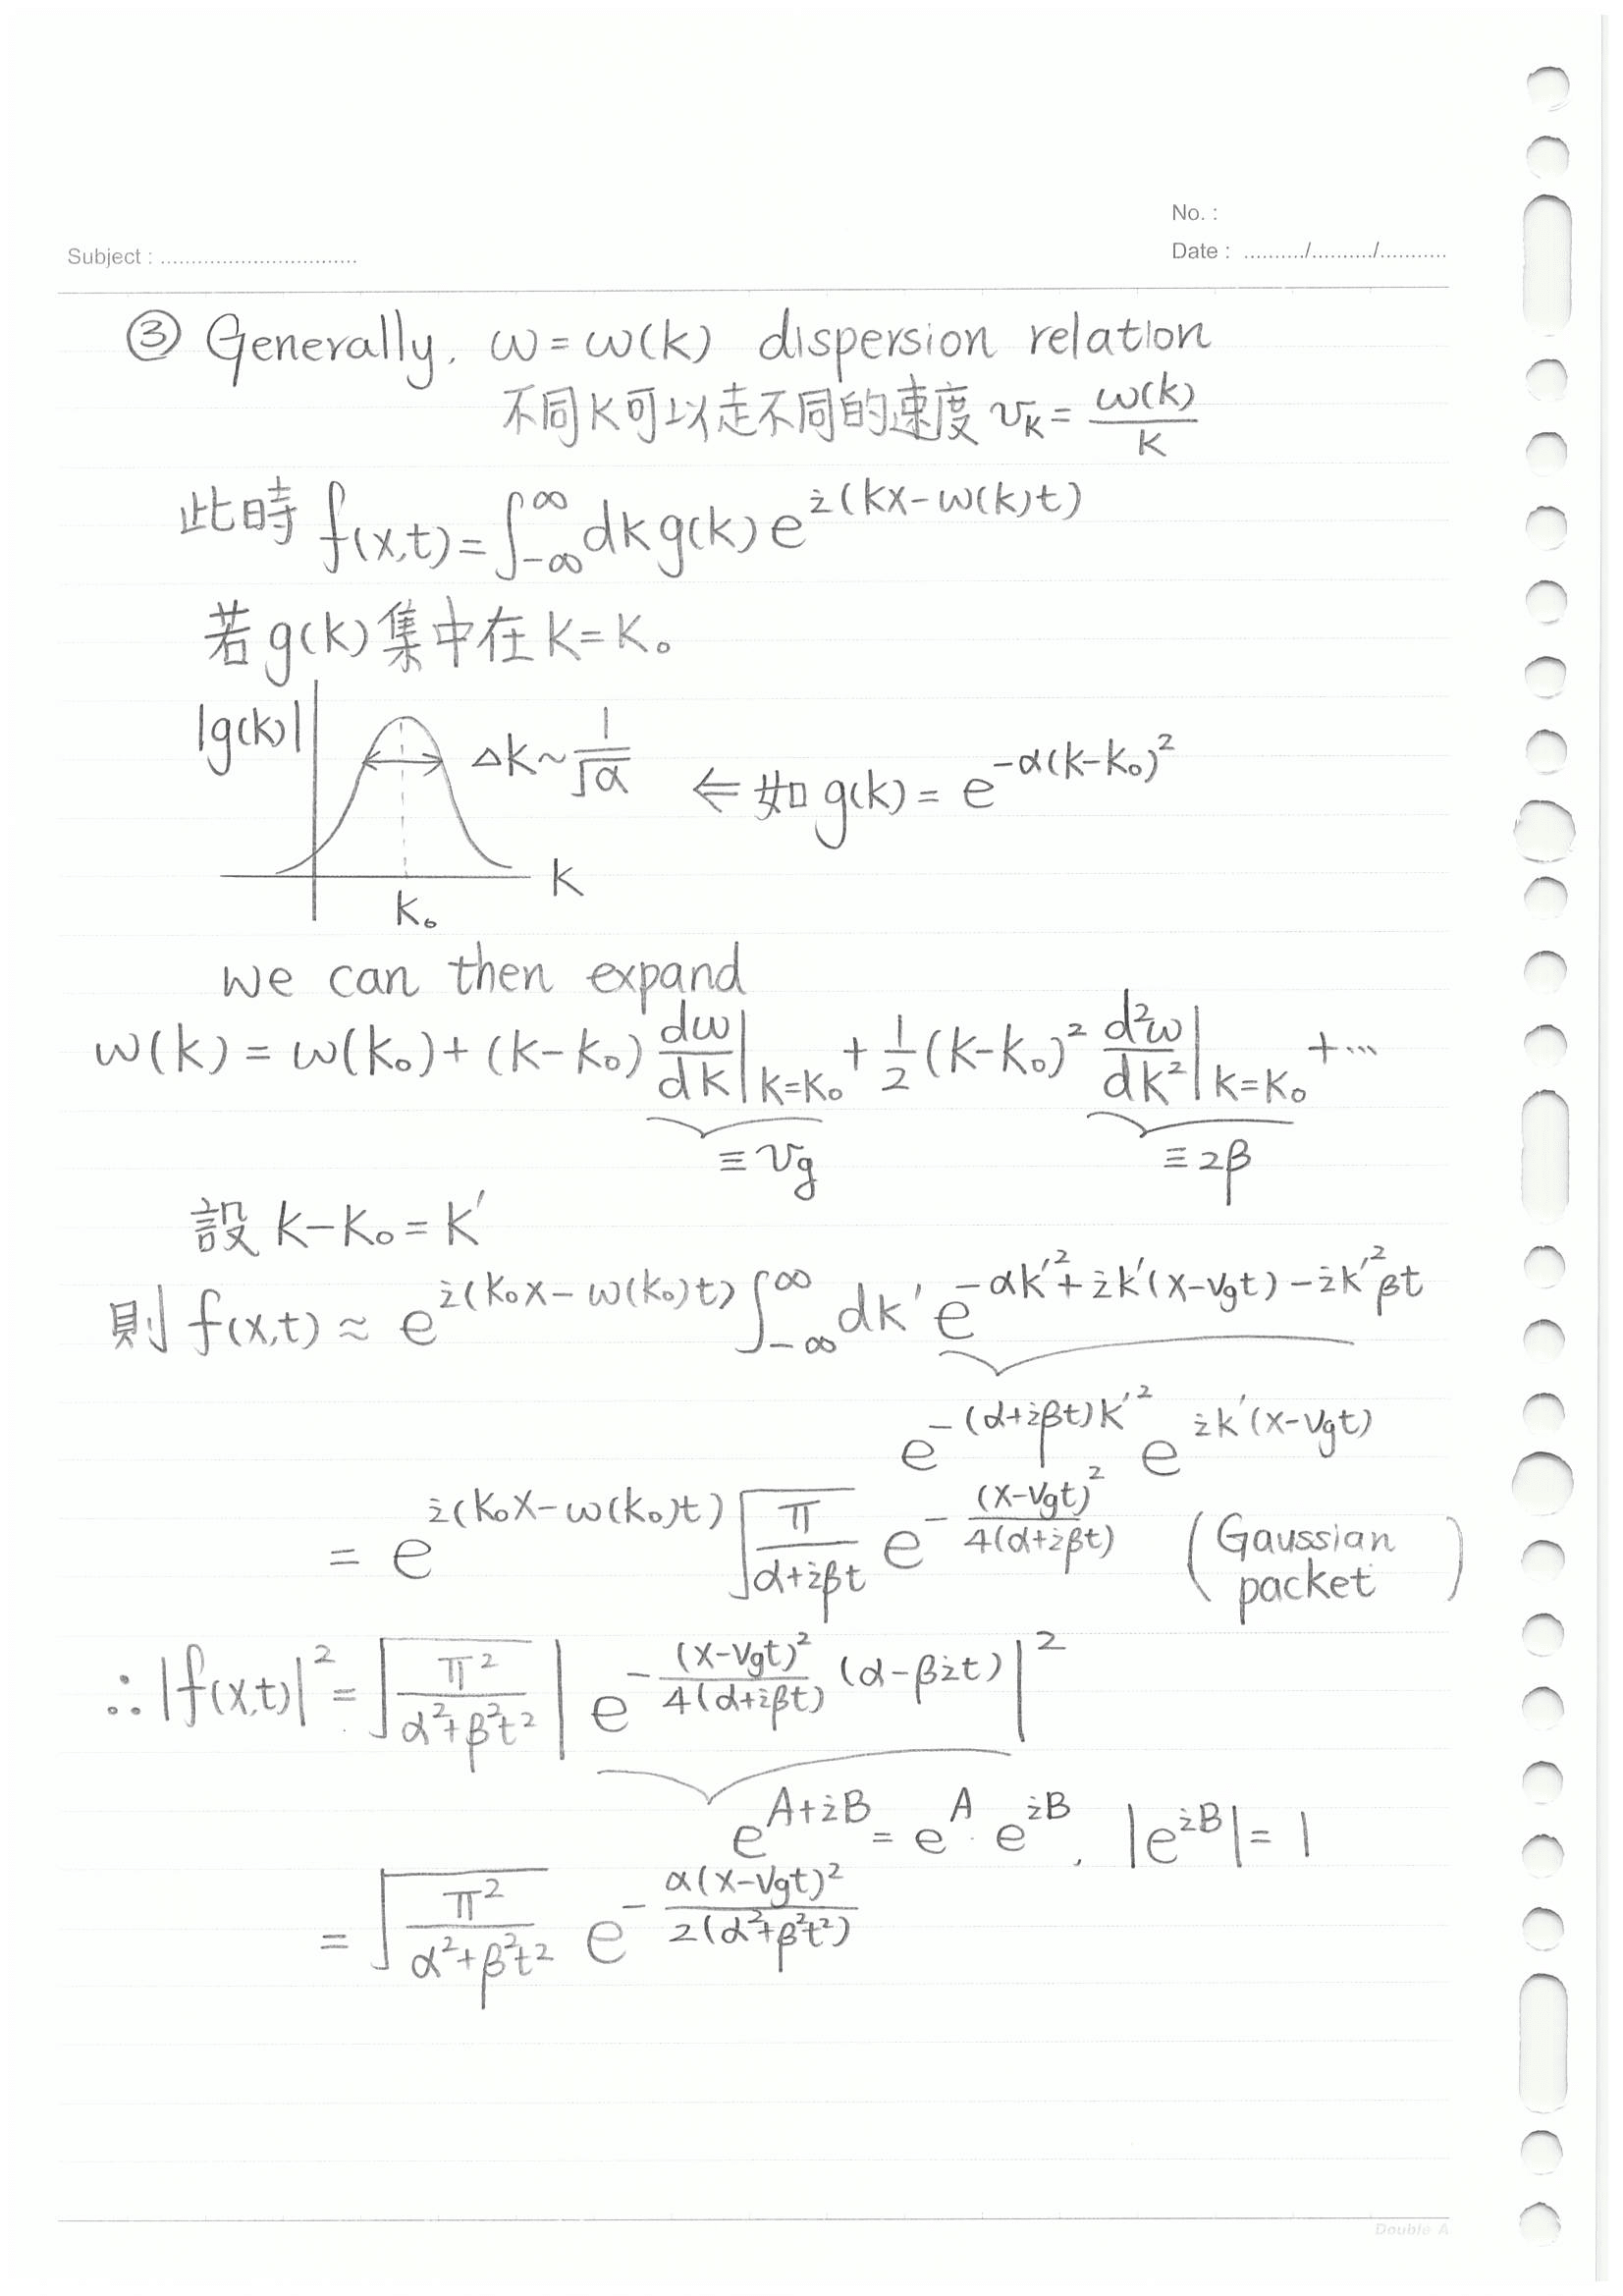 No. :
Subject : ................................
Date : ........../........../...........
③ Generally. ω = ω(k) dispersion relation
不同k可以走不同的速度 v_k = ω(k)/k
此時 f(x,t) = ∫_{-∞}^{∞} dk g(k) e^{i(kx-ω(k)t)}
若 g(k) 集中在 k = k₀
|g(k)|
Δk ~ 1/√α ⇐ 如 g(k) = e^{-α(k-k₀)²}
k
k₀
we can then expand
ω(k) = ω(k₀) + (k-k₀) dω/dk|_{k=k₀} + 1/2 (k-k₀)² d²ω/dk²|_{k=k₀} + ...
≡ v_g ≡ 2β
設 k-k₀ = k′
則 f(x,t) ≈ e^{i(k₀x-ω(k₀)t)} ∫_{-∞}^{∞} dk′ e^{-αk′²+ik′(x-v_gt)-ik′²βt}
e^{-(α+iβt)k′²} e^{ik′(x-v_gt)}
= e^{i(k₀x-ω(k₀)t)} √(π/(α+iβt)) e^{-(x-v_gt)²/4(α+iβt)} (Gaussian packet)
∴ |f(x,t)|² = √(π²/(α²+β²t²)) |e^{-(x-v_gt)²/4(α+iβt) (α-βit)}|²
e^{A+iB} = e^A · e^{iB}, |e^{iB}| = 1
= √(π²/(α²+β²t²)) e^{-α(x-v_gt)²/2(α²+β²t²)}
Double A